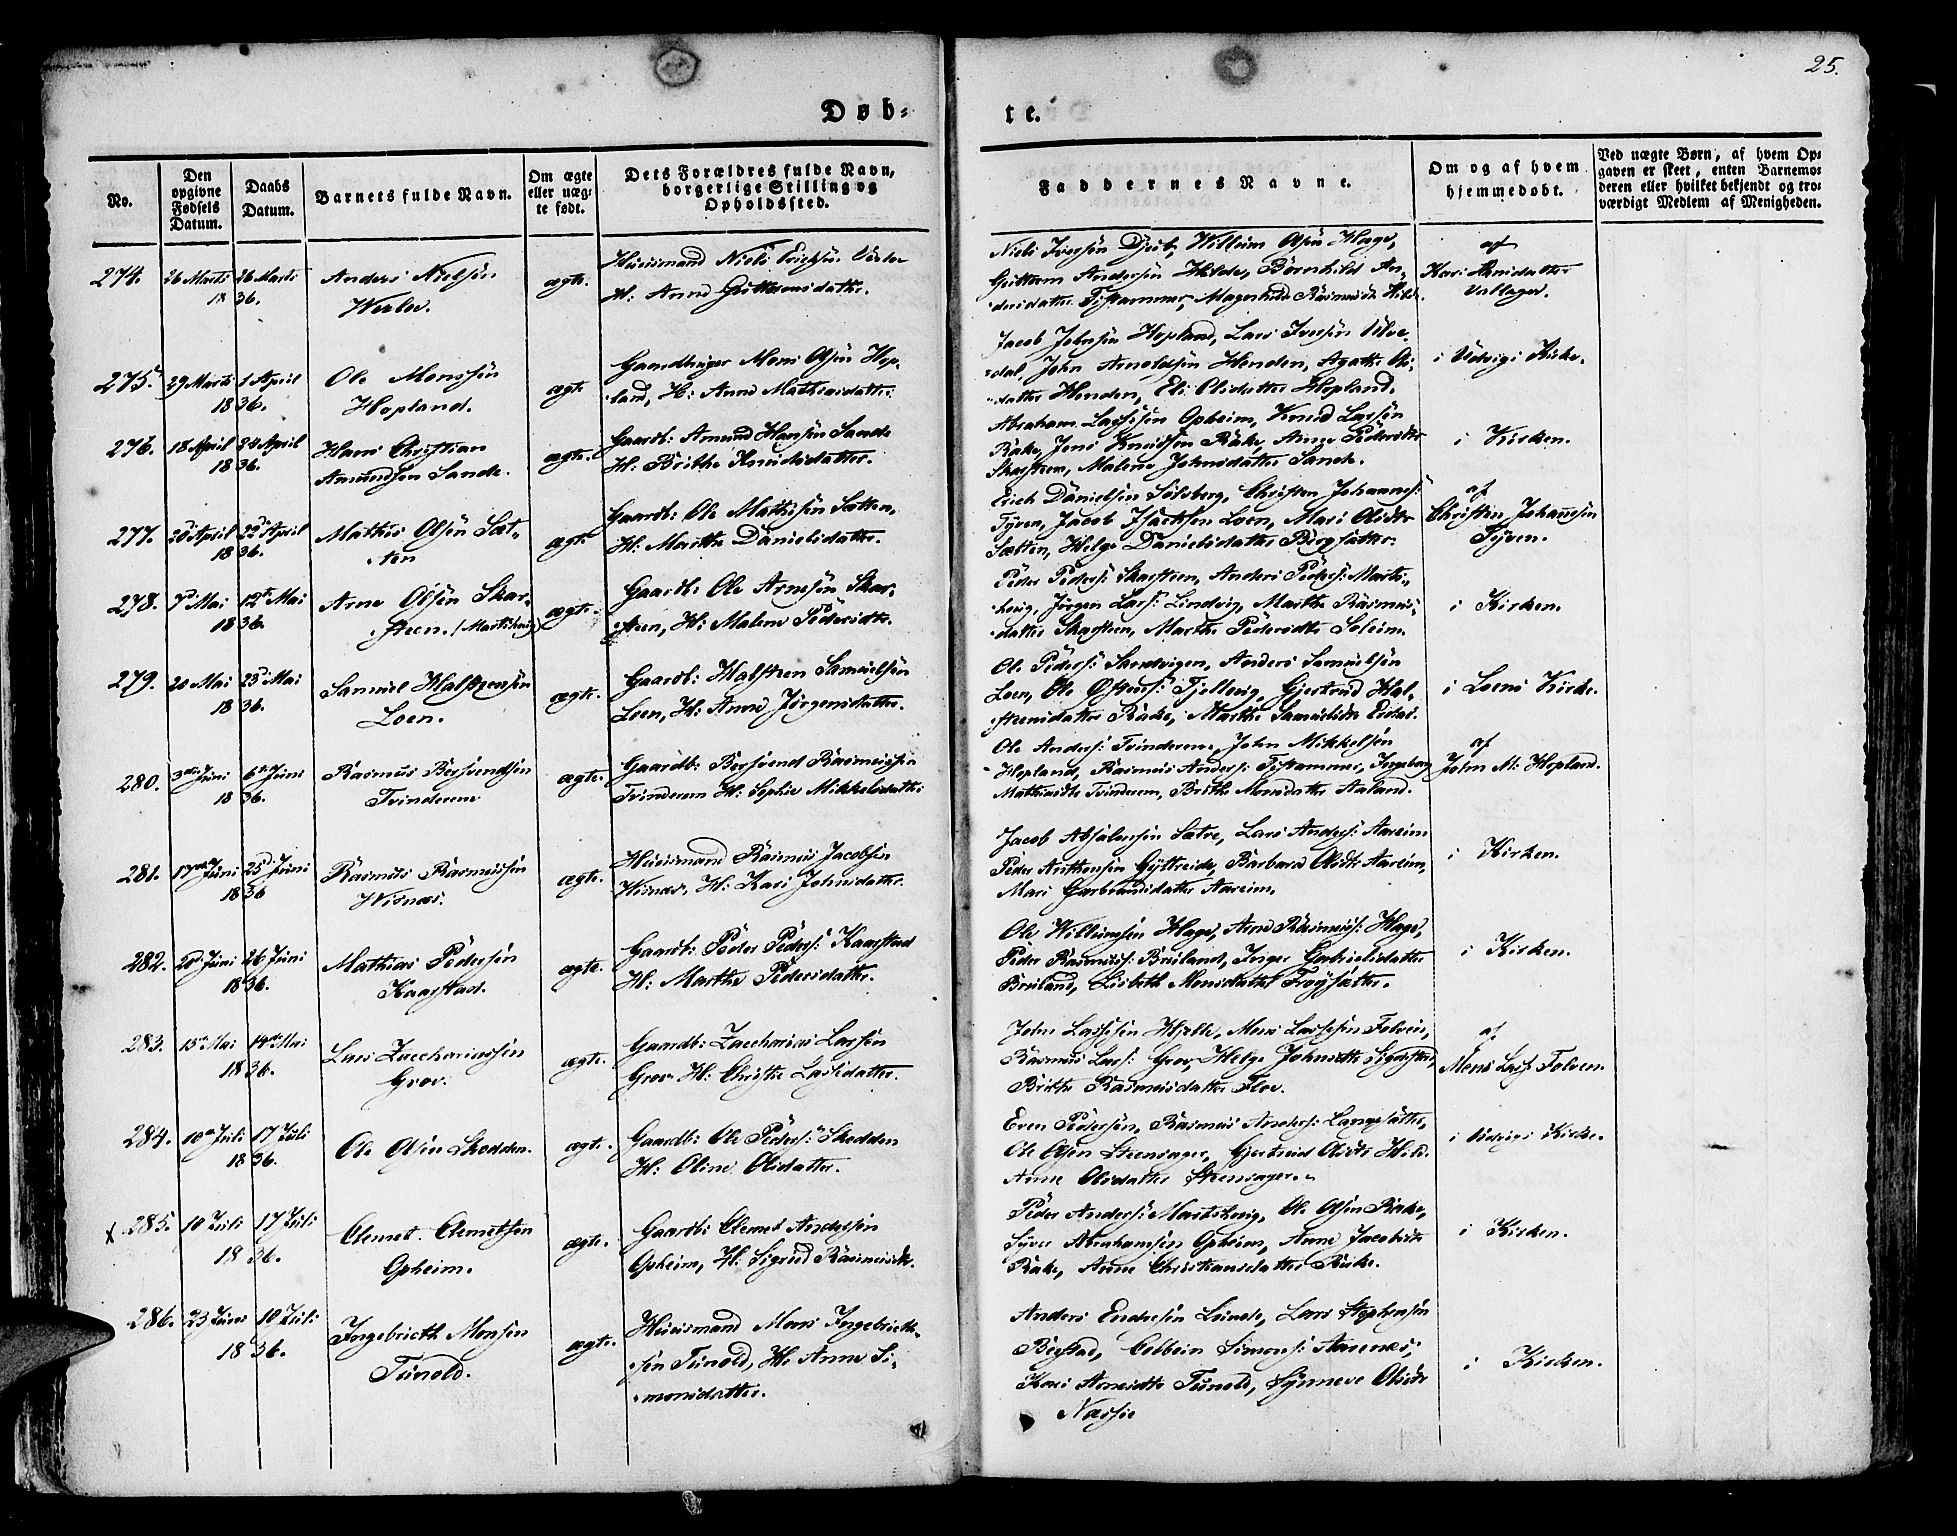 25.
Døb=
te.
No.
Den opgivne Fødsels Datum.
Daabs Datum.
Barnets fulde Navn.
Om ægte eller uæg= te født.
Dets Forældres fulde Navn, borgerlige Stilling og Opholdssted.
Faddernes Navne.
Om og af hvem hjemmedøbt.
Ved uægte Børn, af hvem Op= gaven er skeet, enten Barnemo= deren eller hvilket bekjendt og tro= værdigt Medlem af Menigheden.
274.
26 Marts 26 Marts
1836.
Anders Nielsen
ægte.
Huusmand Niels
H: Anne Guttormsdatter.
Niels Iversen Willum Olsen Hage,
Guttorm Andersen Hilde, Børnhild An-
dersdatter Tistammer, Magnhild Rasmusdt Hilde.
af
Kari Arnsdatter
275.
29 Marts 1 April
1836.
Ole Monssen
Hopland.
ægte
Gaardbruger Mons Olsen Hop-
land, H: Anne Mathiasdatter.
Jacob Johnsen Hopland, Lars Iversen Ulve-
dal, John Arnoldsen Henden, Agathe Ols-
datter Henden, Eli Olsdatter Hopland.
i Udvigs Kirke.
276.
18 April 24 April
1836.
Hans Christian
Amundsen Sande.
ægte.
Gaardb: Amund Hansen Sande
H: Brithe Knudsdatter.
Abraham Lassesen Opheim, Knud Larsen
Rake, Jens Knudsen Rake, Anne Pedersdtr
Skarsteen, Malene Johnsdatter Sande.
i Kirken.
277.
20 April 22 April
1836.
Mathis Olsen Sæt-
ten
ægte
Gaardb: Ole Mathisen Sætten,
H: Marthe Danielsdatter.
Erich Danielsen Solsberg, Christen Johannes:
Tyven, Jacob Loen, Mari Olsdtr
Sætten, Helge Danielsdatter
af
Christen Johannesen
Tyven.
278.
7 Mai 12te Mai
1836.
Arne Olsen Skar-
steen. (Martsheviig)
ægte.
Gaardb: Ole Arnesen Skar-
steen, H: Malene Pedersdtr.
Peder Peders: Skarsteen, Anders Peders: Marts-
heviig, Jørgen Lars: Lindvig, Marthe Rasmus-
datter Skarsteen, Marthe Pedersdtr Soleim.
i Kirken.
279.
20 Mai 23 Mai
1836.
Samuel Halsteensen
Loen.
ægte.
Gaardb: Halsteen Samuelsen
Loen, H: Anne Jørgensdatter.
Ole Peders: Sandvigen, Anders Samuelsen
Loen, Ole Tjellvig, Gjertrud Hal-
steensdatter Rake, Marthe Samuelsdtr
i Loens Kirke.
280.
3die Juni 6te Juni
1836.
Rasmus Bersvendsen
Tvinderem
ægte.
Gaardb: Bersvend Rasmussen
Tvinderem H: Sophie Mikkelsdatter
Ole Anders: Tvinderem, John Mikkelsen
Hopland, Rasmus Anders: Tistammer, Ingeborg
Mathiasdtr Tvinderem, Brithe Monsdatter Aaland.
af
John M: Hopland.
281.
17de Juni 25 Juni
1836
Rasmus Rasmussen
Wisnæs.
ægte.
Huusmand Rasmus Jacobsen
Wisnæs, H: Kari Johnsdatter.
Jacob Absalonsen Sætre, Lars Anders: Aareim
Peder Anthonsen Gyttreide, Barbara Olsdtr Aareim,
Mari Garbrandsdatter Aareim.
i Kirken.
282.
20 Juni 26 Juni
1836.
Mathias Pedersen
Kaarstad.
ægte.
Gaardb: Peder Peders: Kaarstad
H: Marthe Pedersdatter.
Ole Willumsen Hage, Arne Rasmuss: Hage,
Peder Rasmuss: Bruland, Inger Gabrielsdatter
Bruland, Lisbeth Monsdatter Frøysætter.
i Kirken.
283.
13 Mai 14de Mai
1836.
Lars Zacchariassen
Grov.
ægte.
Gaardb: Zaccharias Larsen
Grov H: Christie Larsdatter.
John Lassesen Hjelle, Mons Lassesen Folven,
Rasmus Lars: Grov, Helge Johnsdtr
Brithe Rasmusdatter Floe.
af
Mons Lass: Folven.
284.
10de Juli 17 Juli
1836.
Ole Olsen Skodden.
ægte.
Gaardb: Ole Peders: Skodden
H: Oline Olsdatter.
Even Pedersen, Rasmus Anders: Langesætter,
Ole Olsen Steensager, Gjertrud Olsdtr
Anne Olsdatter Steensager.
i Udvigs Kirke.
x 285.
10 Juli 17 Juli
1836.
Clemet Clemetsen
Opheim.
ægte.
Gaardb: Clemet Andersen
Opheim, H: Sigrid Rasmusdtr.
Peder Anders: Martsheviig, Ole Olsen Rake,
Syver Abrahamsen Opheim, Anne Jacobsdtr
Rake, Anne Christiansdatter Rake.
i Kirken.
286.
23 Juni 10 Juli
1836.
Ingebricth Monsen
Tunold.
ægte.
Huusmand Mons Ingebricth-
sen Tunold, H: Anne Si-
monsdatter.
Anders Endresen Lunde, Lars Stephensen
Bøstad, Colbein Simons: Aarnes,
Kari Arnesdtr Tunold, Synneve Olsdtr
Næsse
i Kirken.